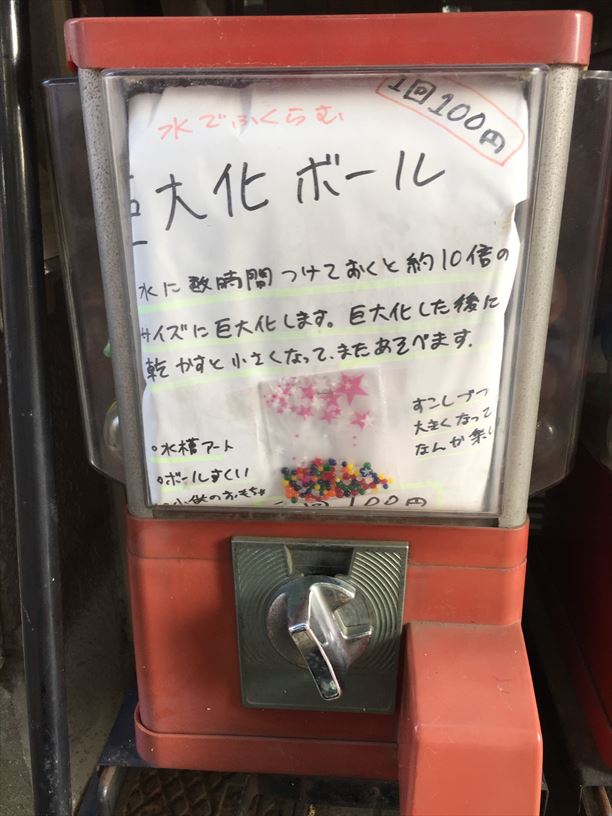 1回100円
水でふくらむ
巨大化ボール
水に数時間つけておくと約10倍の
サイズに巨大化します。巨大化した後に
乾かすと小さくなって、またあそべます.
すこしづつ
大きくなって
なんか楽し
・水槽アート
・ボールすくい
・小供のおもちゃ
100円